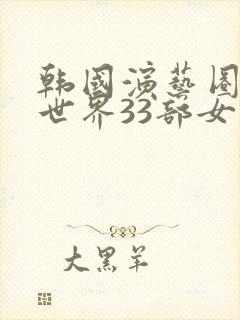 韩國演藝圈
世界33部女
大黑羊